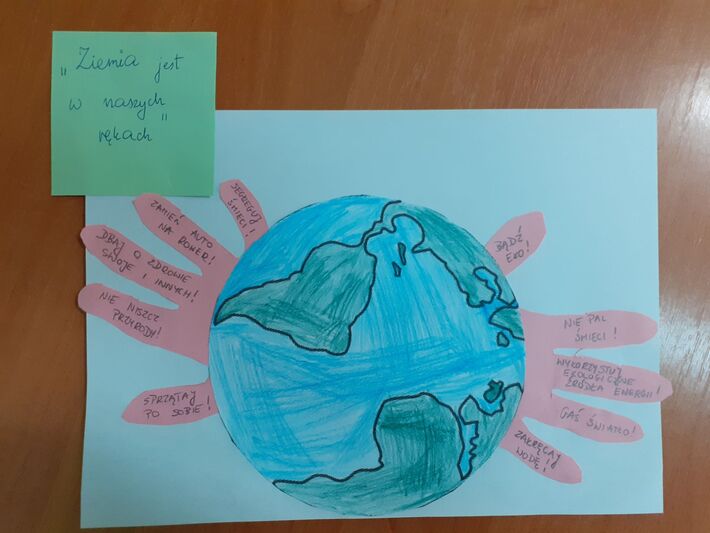 „Ziemia jest
w naszych
rękach"
SEGREGUJ
ŚMIECI!
ZAMIEŃ AUTO
NA ROWER!
DBAJ O ZDROWIE
SWOJE I INNYCH!
NIE NISZCZ
PRZYRODY!
SPRZĄTAJ
PO SOBIE!
BĄDŹ
EKO!
NIE PAL
ŚMIECI!
WYKORZYSTUJ
EKOLOGICZNE
ŹRÓDŁA ENERGII!
GAŚ ŚWIATŁO!
ZAKRĘCAJ
WODĘ!